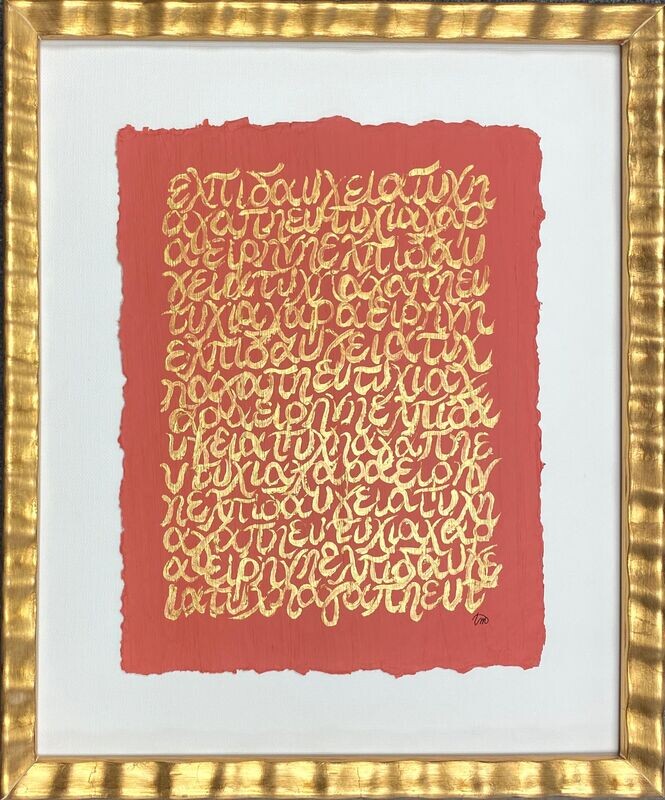 ελπιδαυγειατυχη
αγαπηευτυχιαχαρ
αειρηνηελπιδαυ
γειατυχηαγαπηευ
τυχιαχαραειρηνη
ελπιδαυγειατυχ
ηαγαπηευτυχιαχ
αραειρηνηελπιδα
υγειατυχηαγαπηε
υτυχιαχαραειρην
ηελπιδαυγειατυχη
αγαπηευτυχιαχαρ
αειρηνηελπιδαυγε
ιατυχηαγαπηευτ